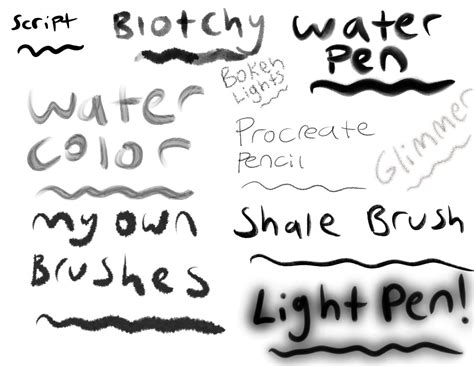 Script
Blotchy
Water
Pen
Boken
Lights
Water
Color
Procreate
Pencil
Glimmer
My own
Brushes
Shale Brush
Light Pen!